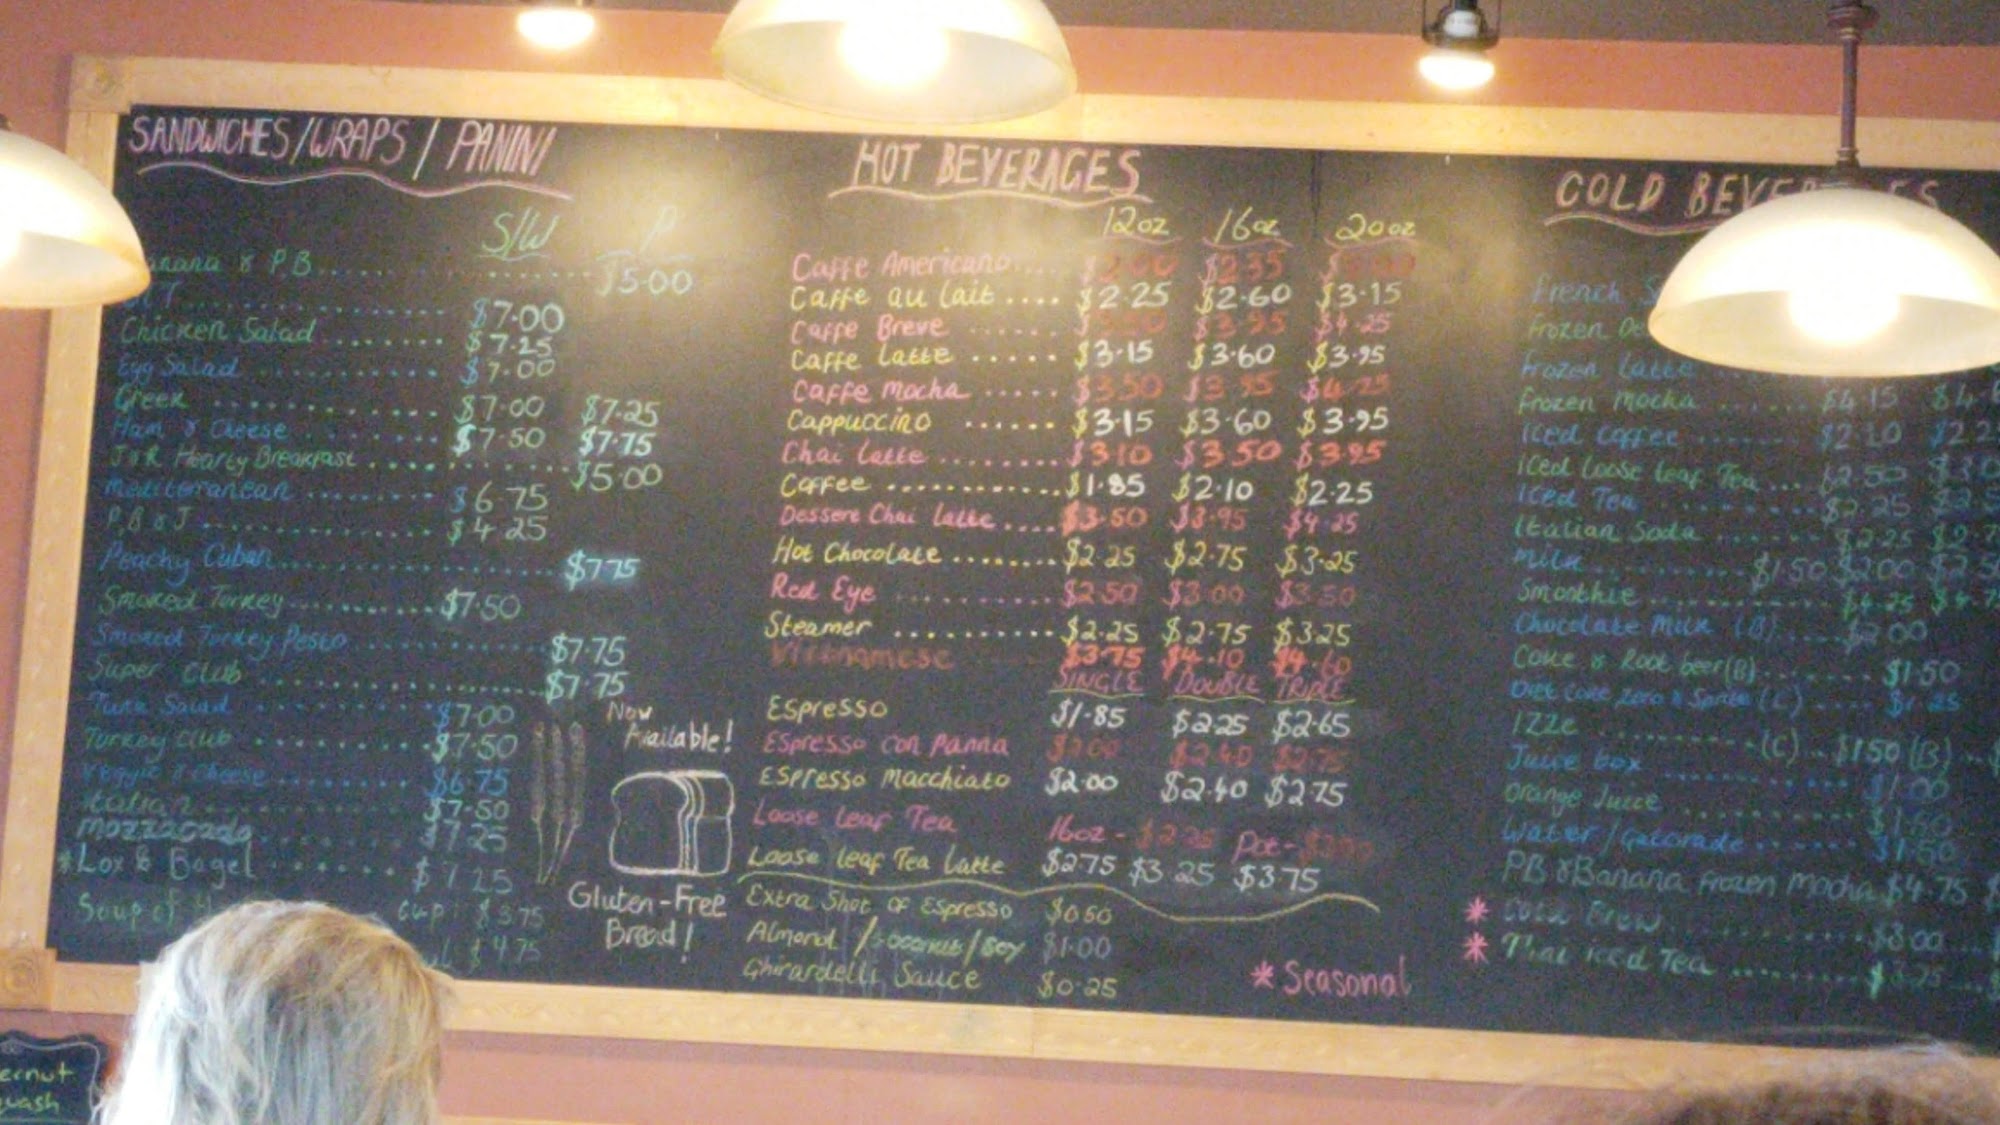 SANDWICHES/WRAPS / PANINI
S/W P
Banana & PB.............................. $5.00
............................ $7.00
Chicken Salad ........ $7.25
Egg Salad ............. $7.00
Greek ................. $7.00 $7.25
Ham & Cheese .......... $7.50 $7.75
J&R Hearty Breakfast ................. $5.00
Mediterranean ......... $6.75
P.B & J ................ $4.25
Peachy Cuban............................ $7.75
Smoked Turkey.......... $7.50
Smoked Turkey Pesto ................. $7.75
Super Club ........................... $7.75
Tuna Salad ............ $7.00
Turkey Club ........... $7.50
Veggie & Cheese ....... $6.75
Italian ............... $7.50
mozzacado ............. $7.25
*Lox & Bagel .......... $7.25
Soup of
Cup: $3.75
$4.75
Now
Available!
Gluten-Free
Bread!
HOT BEVERAGES
12oz 16oz 20oz
Caffe Americano.... $2.35
Caffe au lait .... $2.25 $2.60 $3.15
Caffe Breve ...... $3.95 $4.25
Caffe Latte ...... $3.15 $3.60 $3.95
Caffe Mocha ...... $3.50 $3.95 $4.25
Cappuccino ...... $3.15 $3.60 $3.95
Chai Latte ........ $3.10 $3.50 $3.95
Coffee ............ $1.85 $2.10 $2.25
Dessert Chai Latte .... $3.50 $3.95 $4.25
Hot Chocolate ........ $2.25 $2.75 $3.25
Red Eye ........... $2.50 $3.00 $3.50
Steamer ........... $2.25 $2.75 $3.25
Vietnamese $3.75 $4.10 $4.60
SINGLE DOUBLE TRIPLE
Espresso $1.85 $2.25 $2.65
Espresso con Panna $2.00 $2.40 $2.75
Espresso Macchiato $2.00 $2.40 $2.75
Loose Leaf Tea 16oz - $2.25 Pot-
Loose Leaf Tea Latte $2.75 $3.25 $3.75
Extra Shot of Espresso $0.50
Almond /Coconut/Soy $1.00
Ghirardelli Sauce $0.25
* Seasonal
COLD BEVERAGES
French
Frozen
Frozen Latte
Frozen Mocha ..... $4.15
Iced Coffee ....... $2.10
Iced Loose Leaf Tea .... $2.50
Iced Tea .......... $2.25
Italian Soda ...... $2.25
Milk ......... $1.50 $2.00
Smoothie .......... $4.25
Chocolate Milk (B).... $2.00
Coke & Root beer(B)....... $1.50
Diet Coke Zero & Sprite (C) .... $1.25
IZZe ......... (C).. $1.50 (B)
Juice box ......... $1.00
Orange Juice ...... $1.50
Water/Gatorade..... $1.50
PB &Banana Frozen Mocha $4.75
* Cold Brew ........ $3.00
* Thai iced Tea ....... $3.75
ernut
uash